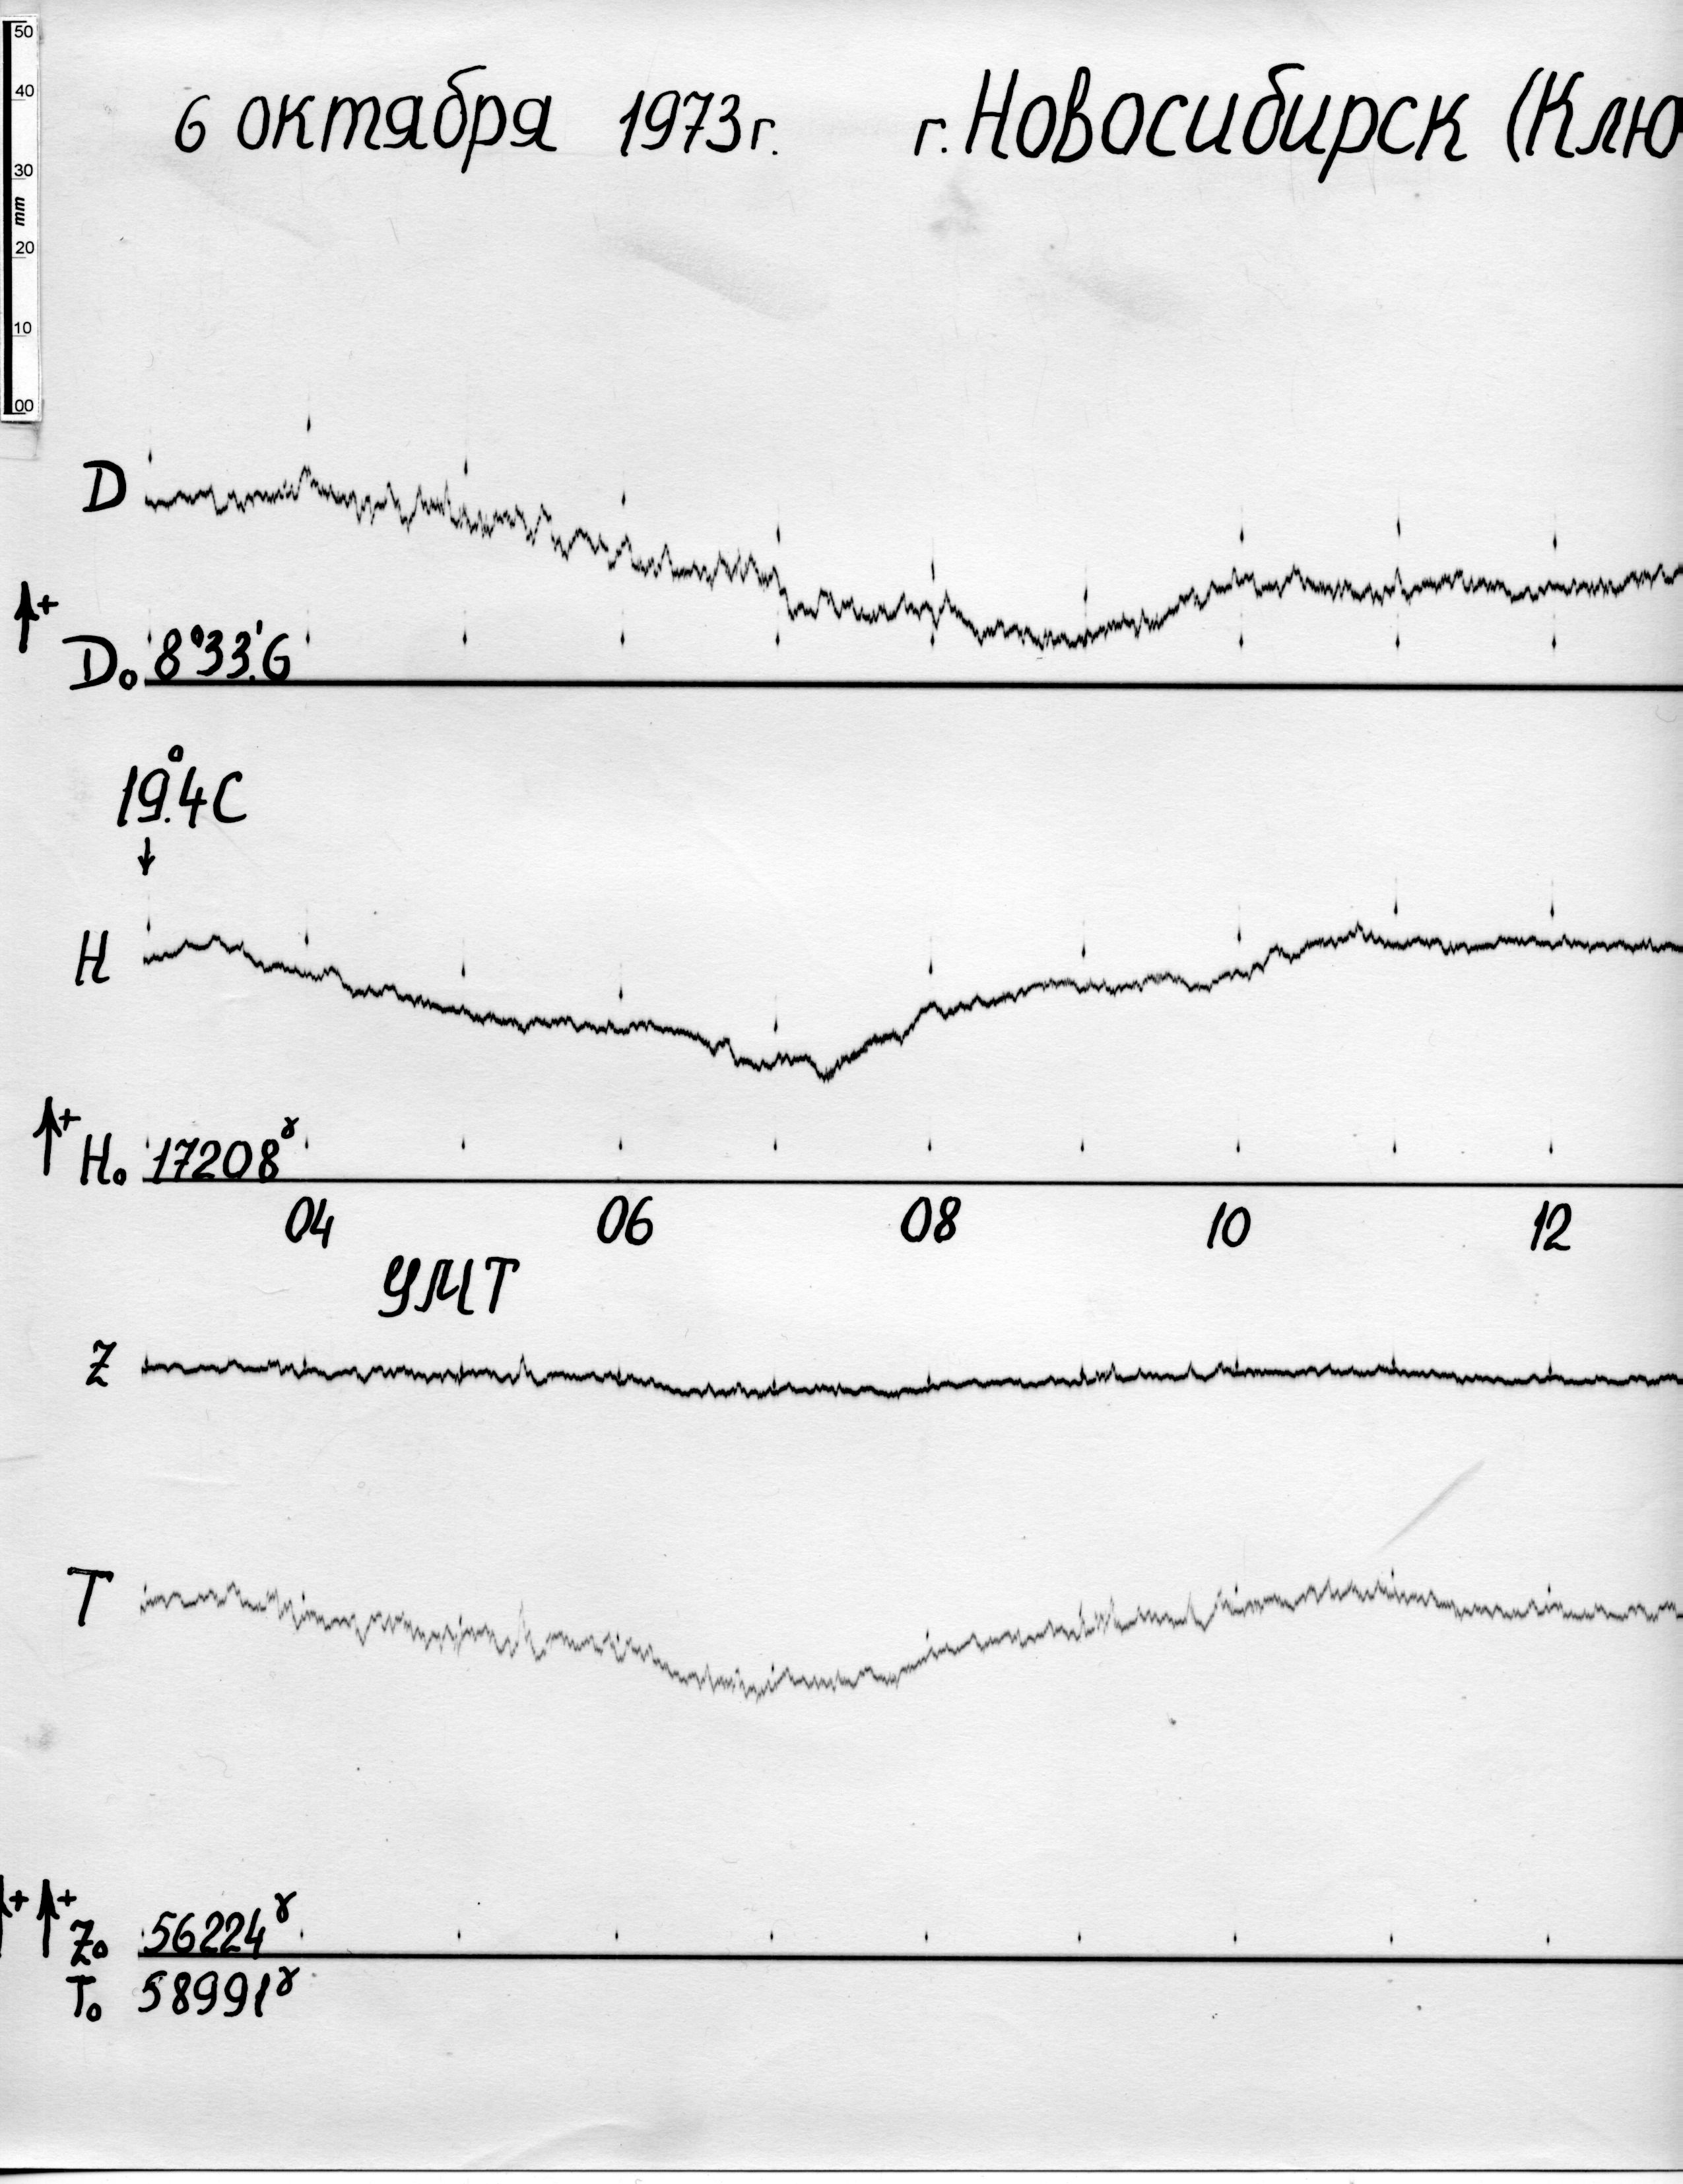 50
40
30
mm
20
10
00
6 октября 1973г. г. Новосибирск (Клю
D
+
D₀ 8°33.'6
19.°4С
H
+
H₀ 17208ˠ
04 06 08 10 12
УМТ
Z
T
+ +
Z₀ 56224ˠ
T₀ 58991ˠ